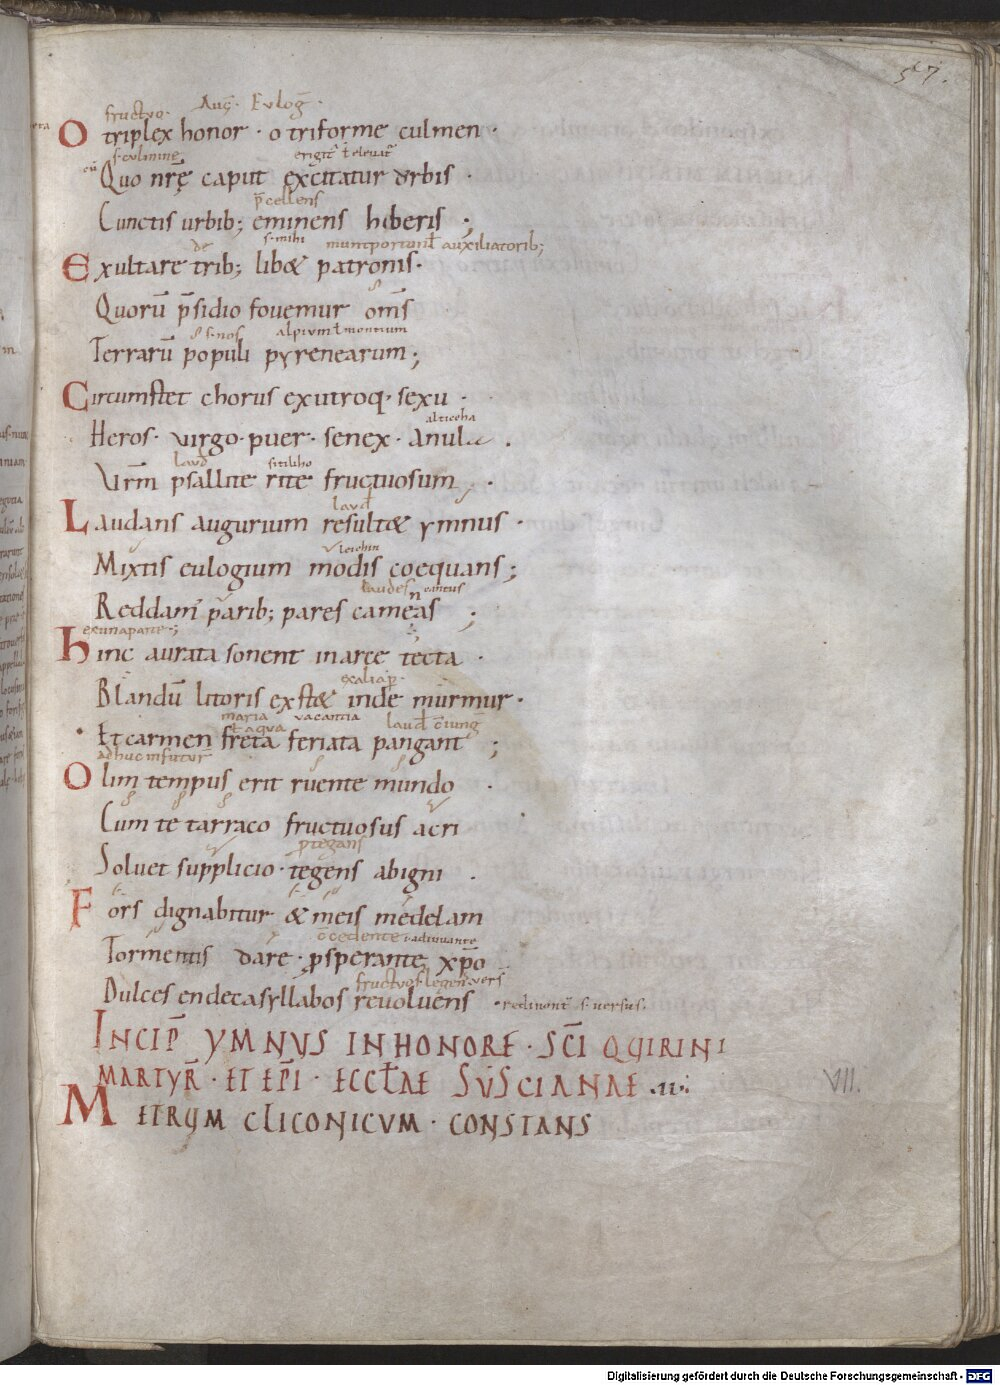 57.
fructuo. Aug. Eulog.
O triplex honor · o triforme culmen ·
s. culmine erigit ł eleuat
Quo nrę̄ caput excitatur orbis ·
p̄cellens
Cunctis urbib; eminens hiberis ;
de s. mihi auxiliatorib;
Exultare trib; lib& patronis ·
Quorū p̄sidio fouemur om̄s
s. nos alpium ł montium
Terrarū populi pyrenearum ;
Circumstet chorus ex utroq· sexu ·
alticha
Heros · virgo · puer · senex · anula .
Vrm̄ psallite rite fructuosum ·
laud
Laudans augurium result& ymnus ·
Mixtis eulogium modis coequans ;
laudes cantus
Reddam̄ parib; pares camenas ;
ex una parte ;
hinc aurata sonent in arce tecta ·
ex alia p̄.
Blandū litoris exst& inde murmur ·
maria vacantia
ł aqua
Et carmen freta feriata pangant ;
adhuc in futur̄
Olim tempus erit ruente mundo ·
Cum te tarraco fructuosus acri
p̄tegans
Soluet supplicio · tegens ab igni .
Fors dignabitur & meis medelam
adiuuante
Tormentis dare · p̄sperante xp̄o
Dulces endecasyllabos reuoluens · s. versus.
INCIP̄ YMNUS IN HONORE · SC̄I QUIRINI
MARTYR̄ · ET EP̄I · ECCL̄AE SUSCIANAE
VII.
METRUM CLICONICUM · CONSTANS
Digitalisierung gefördert durch die Deutsche Forschungsgemeinschaft - DFG